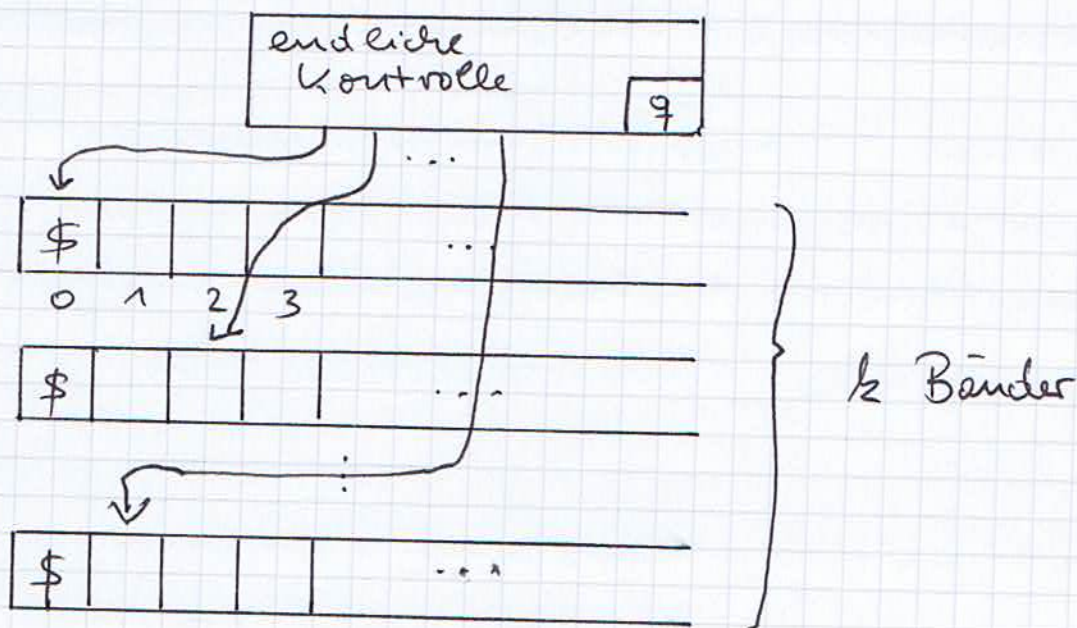 endliche
Kontrolle
q
...
$ ...
0 1 2 3
$ ....
k Bänder
:
$ ...